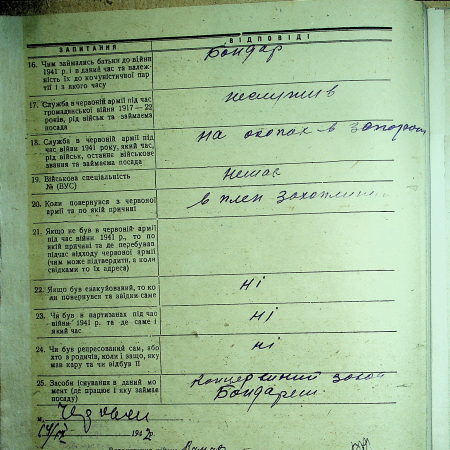 ЗАПИТАННЯ
ВІДПОВІДІ
16. Чим займались батьки до війни
1941 р. і в даний час та належ-
ність їх до комуністичної пар-
тії і з якого часу
Бондар
17. Служба в червоній армії під час
громадянської війни 1917—22
років, рід військ та займаєма
посада
неслужив
18. Служба в червоній армії під
час війни 1941 року, який час,
рід військ, останнє військове
звання та займаєма посада
на окопах в
19. Військова спеціальність
№ (ВУС)
немає
20. Коли повернувся в червоної
армії та по якій причині
в плен
21. Якщо не був в червоній армії
під час війни 1941 р., то по
якій причині та де перебував
підчас відходу червоної армії
(чим може підтвердити, а коли
свідками то їх адреса)
22. Якщо був евакуйований, то ко-
ли повернувся та звідки саме
ні
23. Чи був в партизанах під час
війни 1941 р. та де саме і
який час
ні
24. Чи був репресований сам, або
хто з родичів, коли і защо, яку
мав кару та чи відбув її
ні
25. Засоби існування в даний мо-
мент (де працює і яку займає
посаду)
Бондарем
м.
194